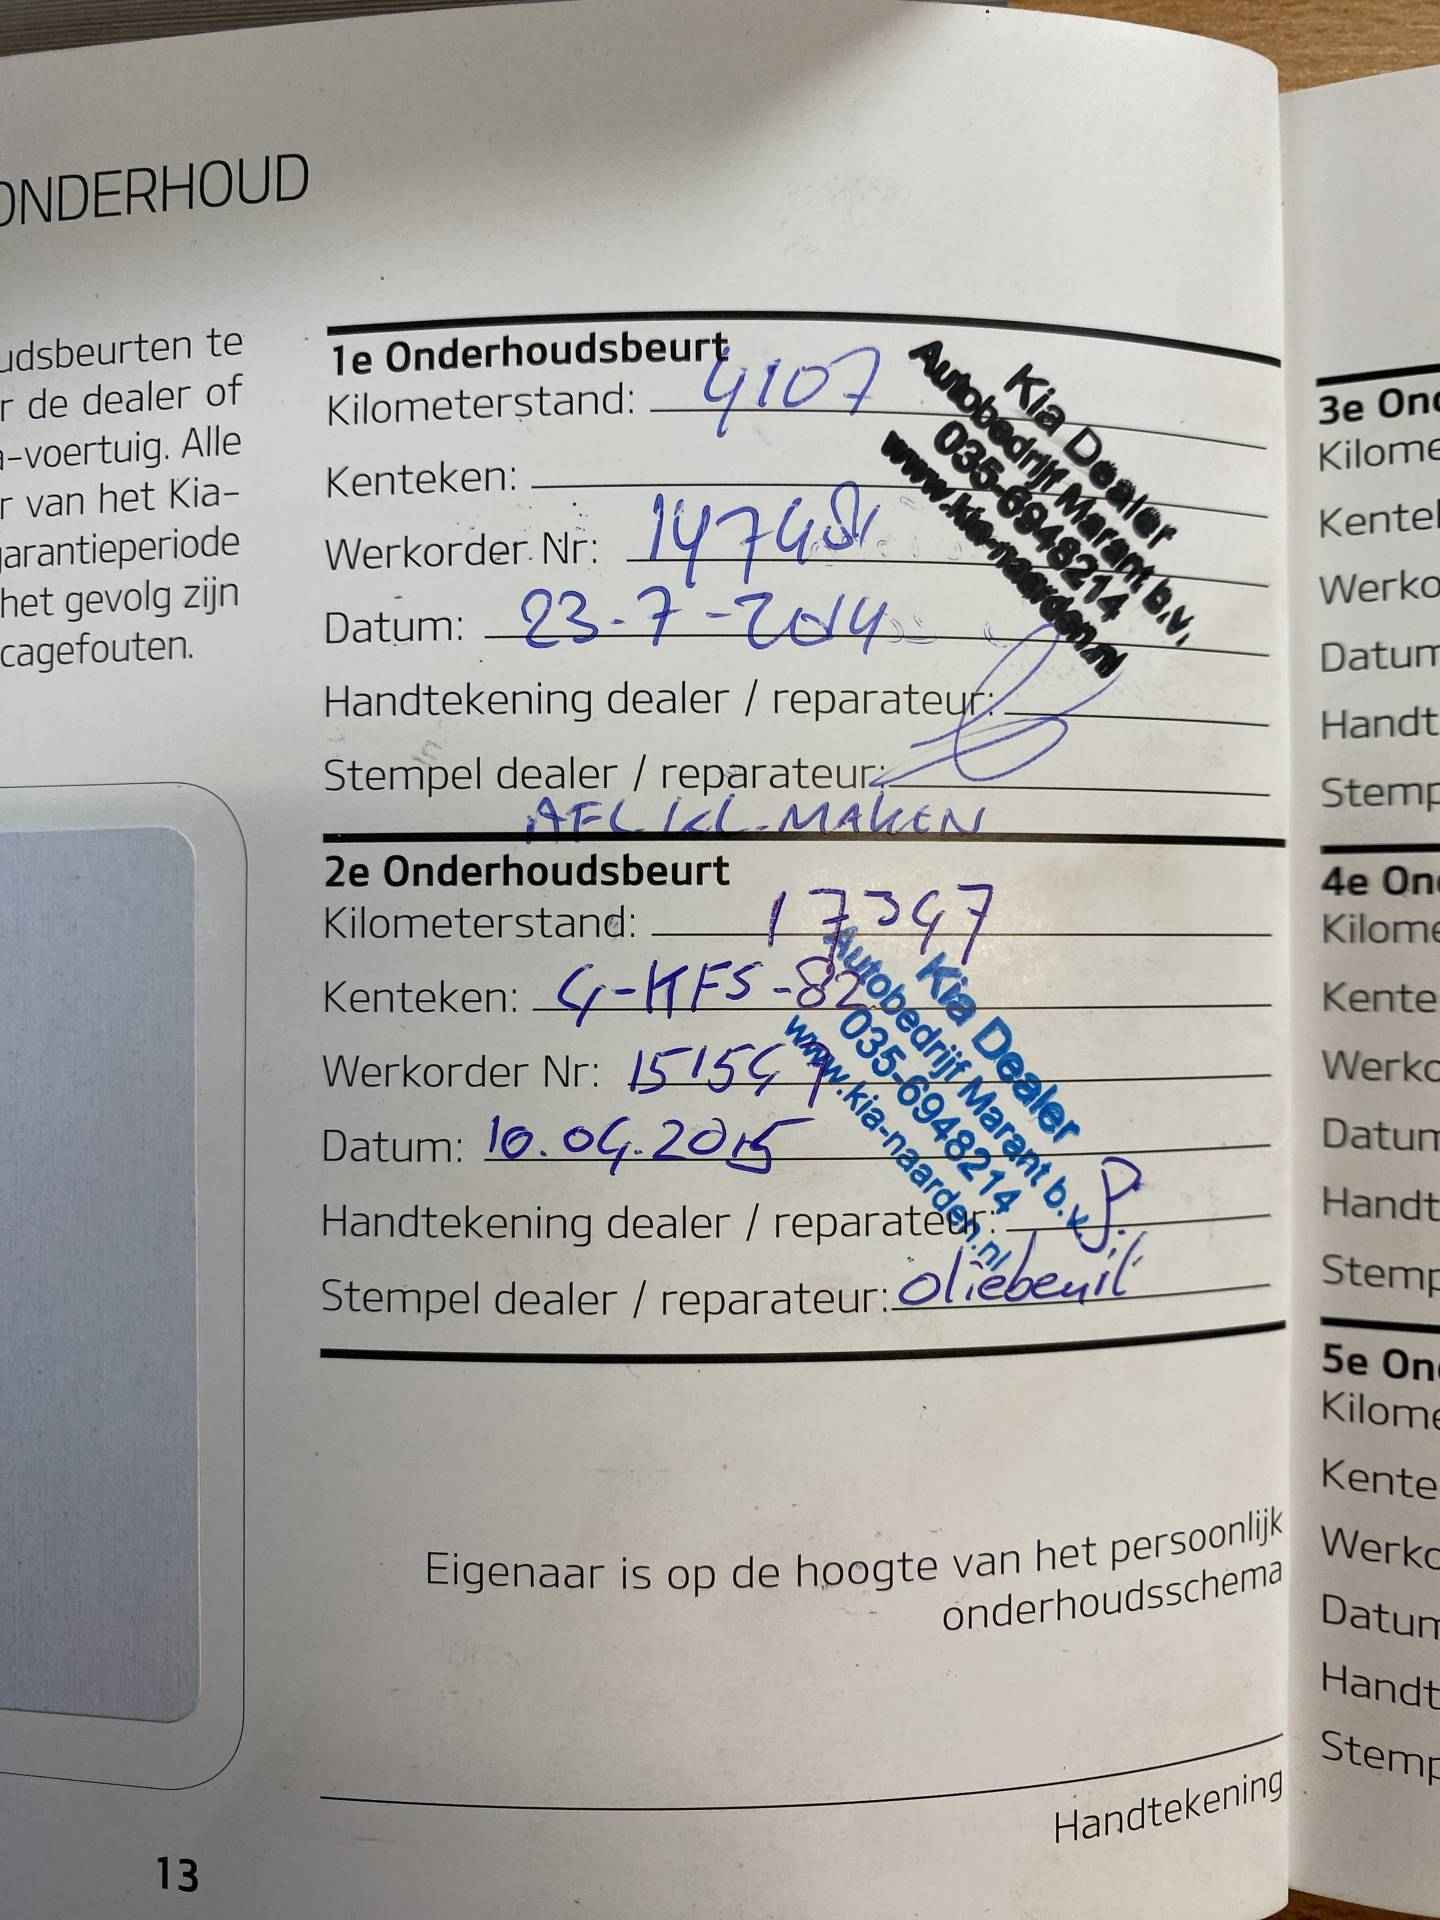 ONDERHOUD
udsbeurten te
r de dealer of
a-voertuig. Alle
r van het Kia-
garantieperiode
het gevolg zijn
cagefouten.
1e Onderhoudsbeurt
Kilometerstand: 4107
Kenteken:
Werkorder Nr:
Datum: 23-7-2014
Handtekening dealer / reparateur:
Stempel dealer / reparateur:
AFL KL-MAKEN
Kia Dealer
Autobedrijf Marant b.v.
035-6948214
www.kia-naarden.nl
2e Onderhoudsbeurt
Kilometerstand: 17347
Kenteken: 4-KFS-82
Werkorder Nr: 151547
Datum: 10.04.2015
Handtekening dealer / reparateur:
Stempel dealer / reparateur: oliebeurt
Kia Dealer
Autobedrijf Marant b.v.
035-6948214
www.kia-naarden.nl
Eigenaar is op de hoogte van het persoonlijk
onderhoudsschema
Handtekening
13
3e Ond
Kilome
Kentek
Werko
Datum
Handt
Stemp
4e On
Kilome
Kente
Werko
Datum
Handt
Stemp
5e On
Kilome
Kente
Werko
Datum
Handt
Stemp